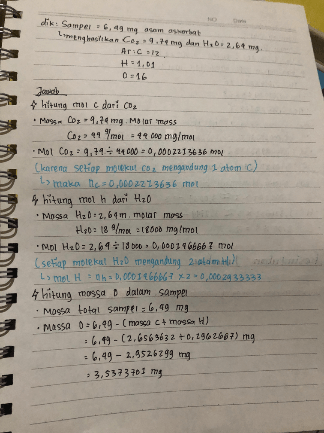 dik: Sampel = 6,49 mg asam askorbat
↳ menghasilkan CO₂ = 9,74 mg dan H₂O = 2,64 mg.
Ar: C = 12
H = 1,01
O = 16
Jawab
↳ hitung mol C dari CO₂
• Massa CO₂ = 9,74 mg. Molar mass
CO₂ = 44 g/mol = 44 000 mg/mol
• Mol CO₂ = 9,74 ÷ 44000 = 0,0002213636 mol
(karena setiap molekul CO₂ mengandung 1 atom C)
↳ maka nc = 0,0002213636 mol
↳ hitung mol h dari H₂O
• Massa H₂O = 2,64 m. molar mass
H₂O = 18 g/mol = 18000 mg/mol
• Mol H₂O = 2,64 ÷ 18000 = 0,0001466667 mol
(setiap molekul H₂O mengandung 2 atom H)
↳ mol H = nh = 0,0001466667 x 2 = 0,0002933333
↳ hitung massa O dalam sampel
• Massa total sampel = 6,49 mg
• Massa O = 6,49 - (massa C + massa H)
= 6,49 - (2,6563632 + 0,2962667) mg
= 6,49 - 2,9526299 mg
= 3,5373701 mg